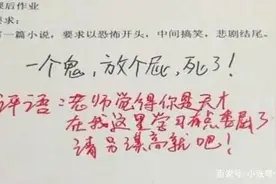 果后作业
要求：
写一篇小说，要求以恐怖开头，中间搞笑，悲剧结尾。
一个鬼，放个屁，死了！
评语：老师觉得你是天才
在我这里学习有点委屈了
请另谋高就吧！